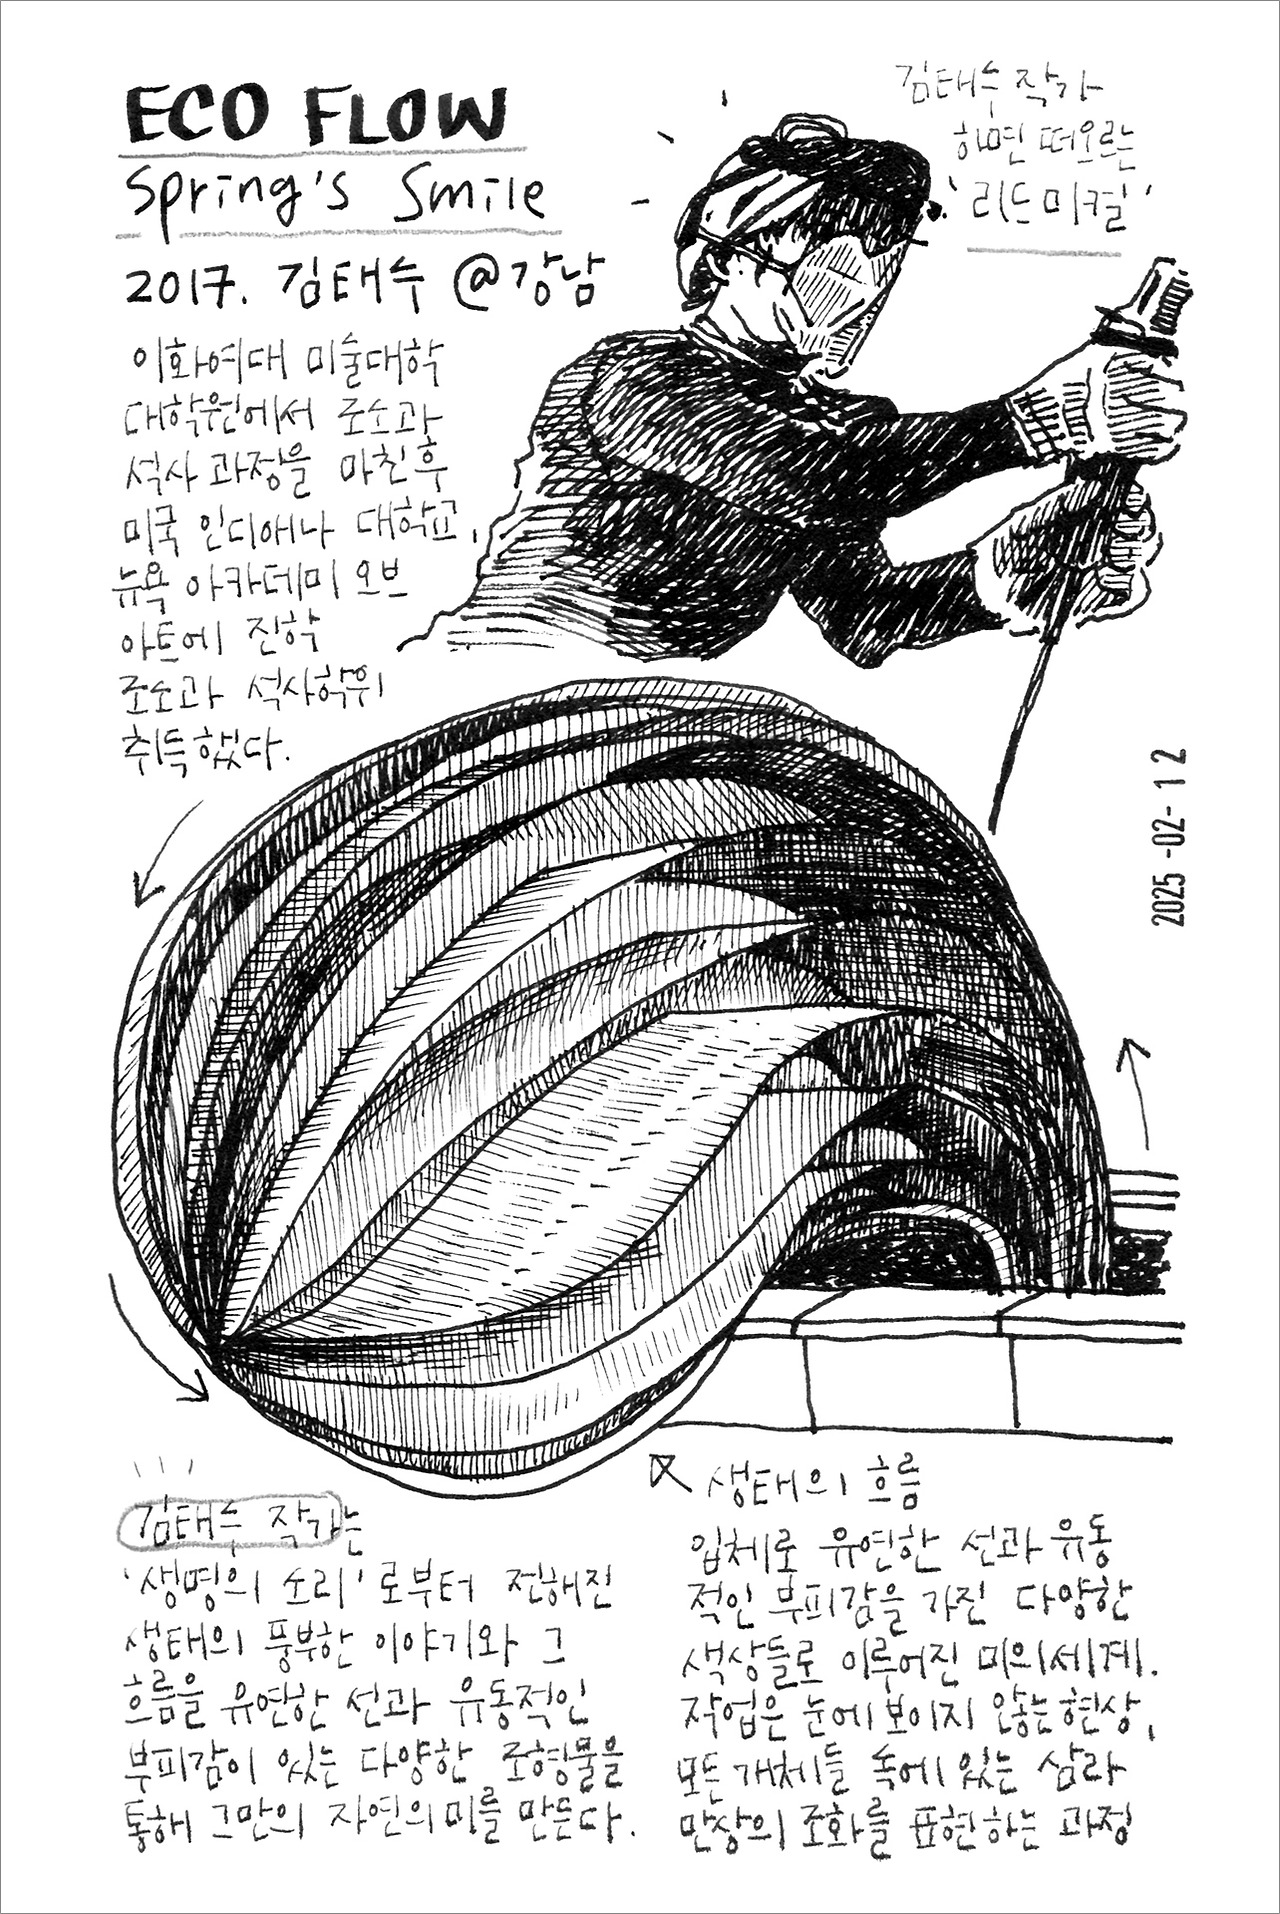 ECO FLOW
Spring's Smile
2017. 김태수 @강남
김태수 작가
하면 떠오르는
'리드미컬'
이화여대 미술대학
대학원에서 조소과
석사 과정을 마친후
미국 인디애나 대학교,
뉴욕 아카데미 오브
아트에 진학
조소과 석사학위
취득했다.
2025-02-12
김태수 작가는
'생명의 소리'로부터 전해진
생태의 풍부한 이야기와 그
흐름을 유연한 선과 유동적인
부피감이 있는 다양한 조형물을
통해 그만의 자연의 미를 만든다.
생태의 흐름
입체로 유연한 선과 유동
적인 부피감을 가진 다양한
색상들로 이루어진 미의세계.
작업은 눈에 보이지 않는 현상,
모든 개체들 속에 있는 삼라
만상의 조화를 표현하는 과정